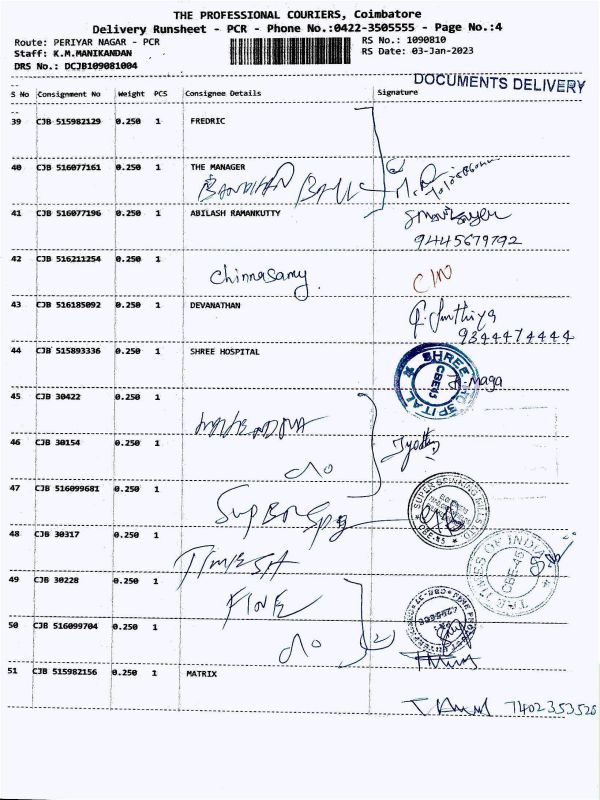 THE PROFESSIONAL COURIERS, Coimbatore
Delivery Runsheet - PCR - Phone No.:0422-3505555 - Page No.:4
Route: PERIYAR NAGAR - PCR
RS No.: 1090810
Staff: K.M.MANIKANDAN
RS Date: 03-Jan-2023
DRS No.: DCJB109081004
DOCUMENTS DELIVERY
S No Consignment No Weight PCS Consignee Details Signature
39 CJB 515982129 0.250 1 FREDRIC
40 CJB 516077161 0.250 1 THE MANAGER
41 CJB 516077196 0.250 1 ABILASH RAMANKUTTY
9445679792
42 CJB 516211254 0.250 1
Chinnasamy
43 CJB 516185092 0.250 1 DEVANATHAN
9344474444
44 CJB 515893336 0.250 1 SHREE HOSPITAL
SHREE HOSPITAL
CBE43
45 CJB 30422 0.250 1
46 CJB 30154 0.250 1
Jyothi
47 CJB 516099681 0.250 1
SUPER SPINNING MILLS LTD
48 CJB 30317 0.250 1
THE TIMES OF INDIA
49 CJB 30228 0.250 1
FINE
50 CJB 516099704 0.250 1
51 CJB 515982156 0.250 1 MATRIX
7402353528